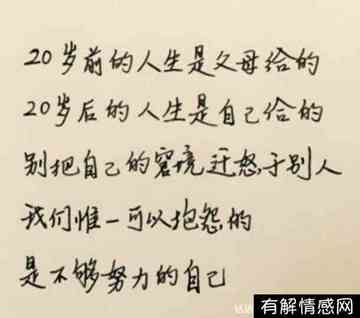 20岁前的人生是父母给的
20岁后的人生是自己给的
别把自己的窘境迁怒于别人
我们惟一可以抱怨的
是不够努力的自己
有解情感网